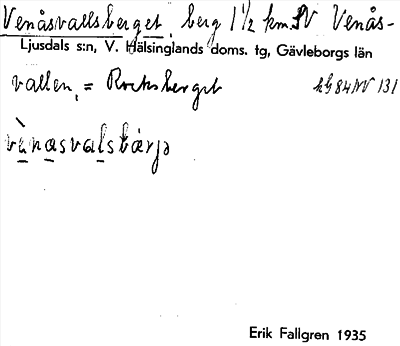 Venåsvallsberget, berg 1 1/2 km. SV Venås-
Ljusdals s:n, V. Hälsinglands doms. tg, Gävleborgs län
vallen, = Rocksberget
hg 84 NV 131
vänasvalsbärjə
Erik Fallgren 1935